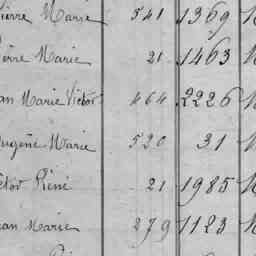 ierre Marie 541 1369
ierre Marie 21 1463
an Marie Victor 464 2226
ugène Marie 520 31
ctor René 21 1985
ean Marie 279 1123